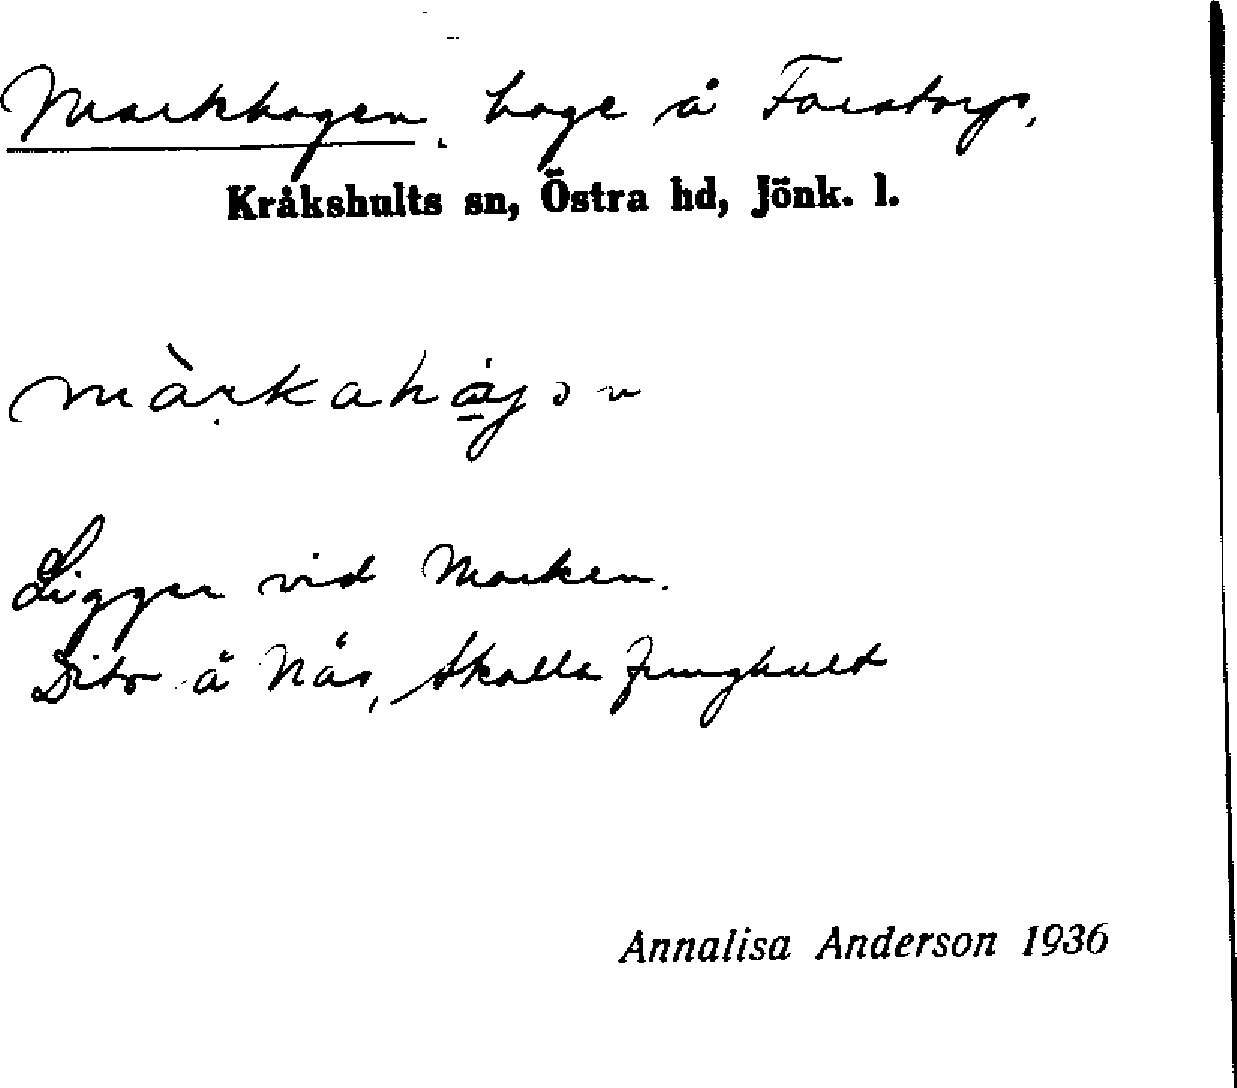 Markhagen, hage å Farstorp,
Kråkshults sn, Östra hd, Jönk. l.
màrkahágən
Ligger vid Marken.
Dito å Nås, Skalla Ljunghult
Annalisa Anderson 1936